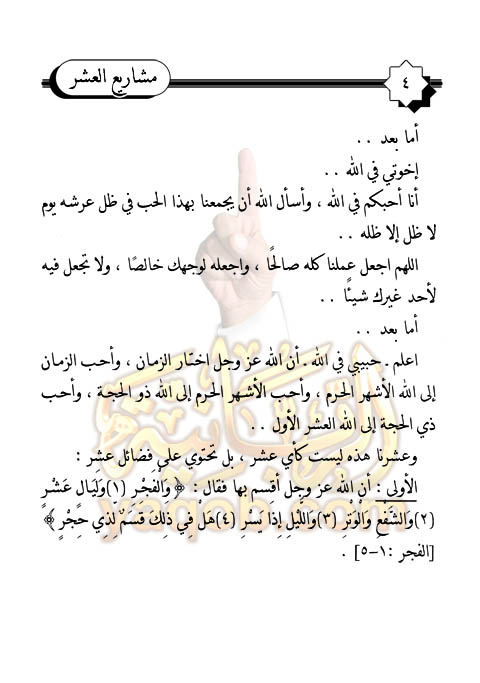 مشاريع العشر
٤
أما بعد . .
إخوتي في الله . .
أنا أحبكم في الله ، وأسأل الله أن يجمعنا بهذا الحب في ظل عرشه يوم
لا ظل إلا ظله . .
اللهم اجعل عملنا كله صالحًا ، واجعله لوجهك خالصًا ، ولا تجعل فيه
لأحد غيرك شيئًا . .
أما بعد . .
اعلم ـ حبيبي في الله ـ أن الله عز وجل اختار الزمان ، وأحب الزمان
إلى الله الأشهر الحرم ، وأحب الأشهر الحرم إلى الله ذو الحجة ، وأحب
ذي الحجة إلى الله العشر الأول . .
وعشرنا هذه ليست كأي عشر ، بل تحتوي على فضائل عشر :
الأولى : أن الله عز وجل أقسم بها فقال : ﴿ وَالْفَجْرِ (١)وَلَيَالٍ عَشْرٍ
(٢)وَالشَّفْعِ وَالْوَتْرِ (٣)وَاللَّيْلِ إِذَا يَسْرِ (٤)هَلْ فِي ذَلِكَ قَسَمٌ لِّذِي حِجْرٍ ﴾
[الفجر :١-٥] .
yaqob.com